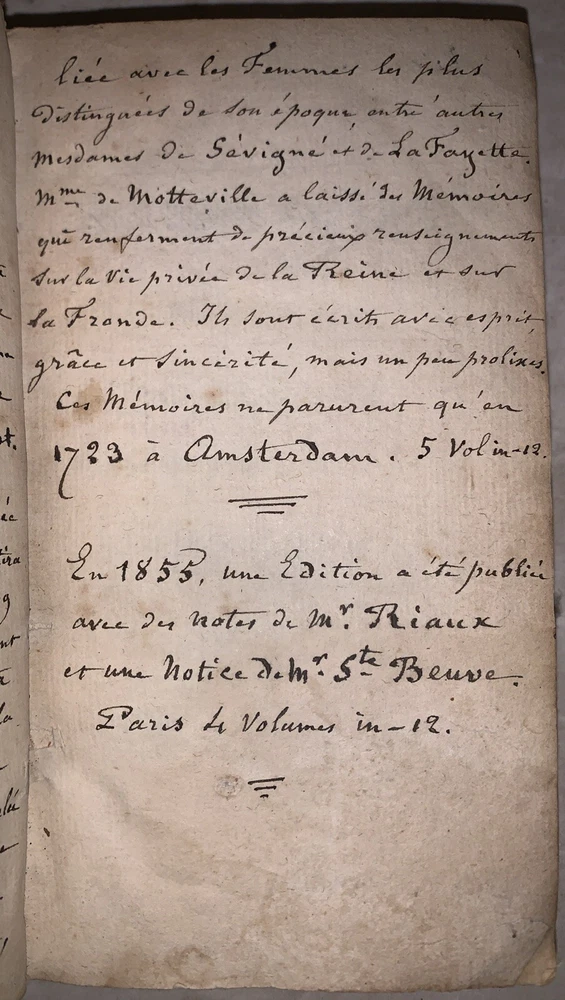 liée avec les Femmes les plus
distinguées de son époque entr'autres
mesdames de Sévigné et de La Fayette.
Mme de Motteville a laissé des Mémoires
qui renferment de précieux renseignements
sur la vie privée de la Reine et sur
la Fronde. Ils sont écrits avec esprit,
grâce et Sincérité, mais un peu prolixes.
Ces Mémoires ne parurent qu'en
1723 à Amsterdam. 5 Vol in-12.
En 1855, une Edition a été publiée
avec des notes de Mr. Riaux
et une Notice de Mr. Ste Beuve.
Paris 4 Volumes in-12.